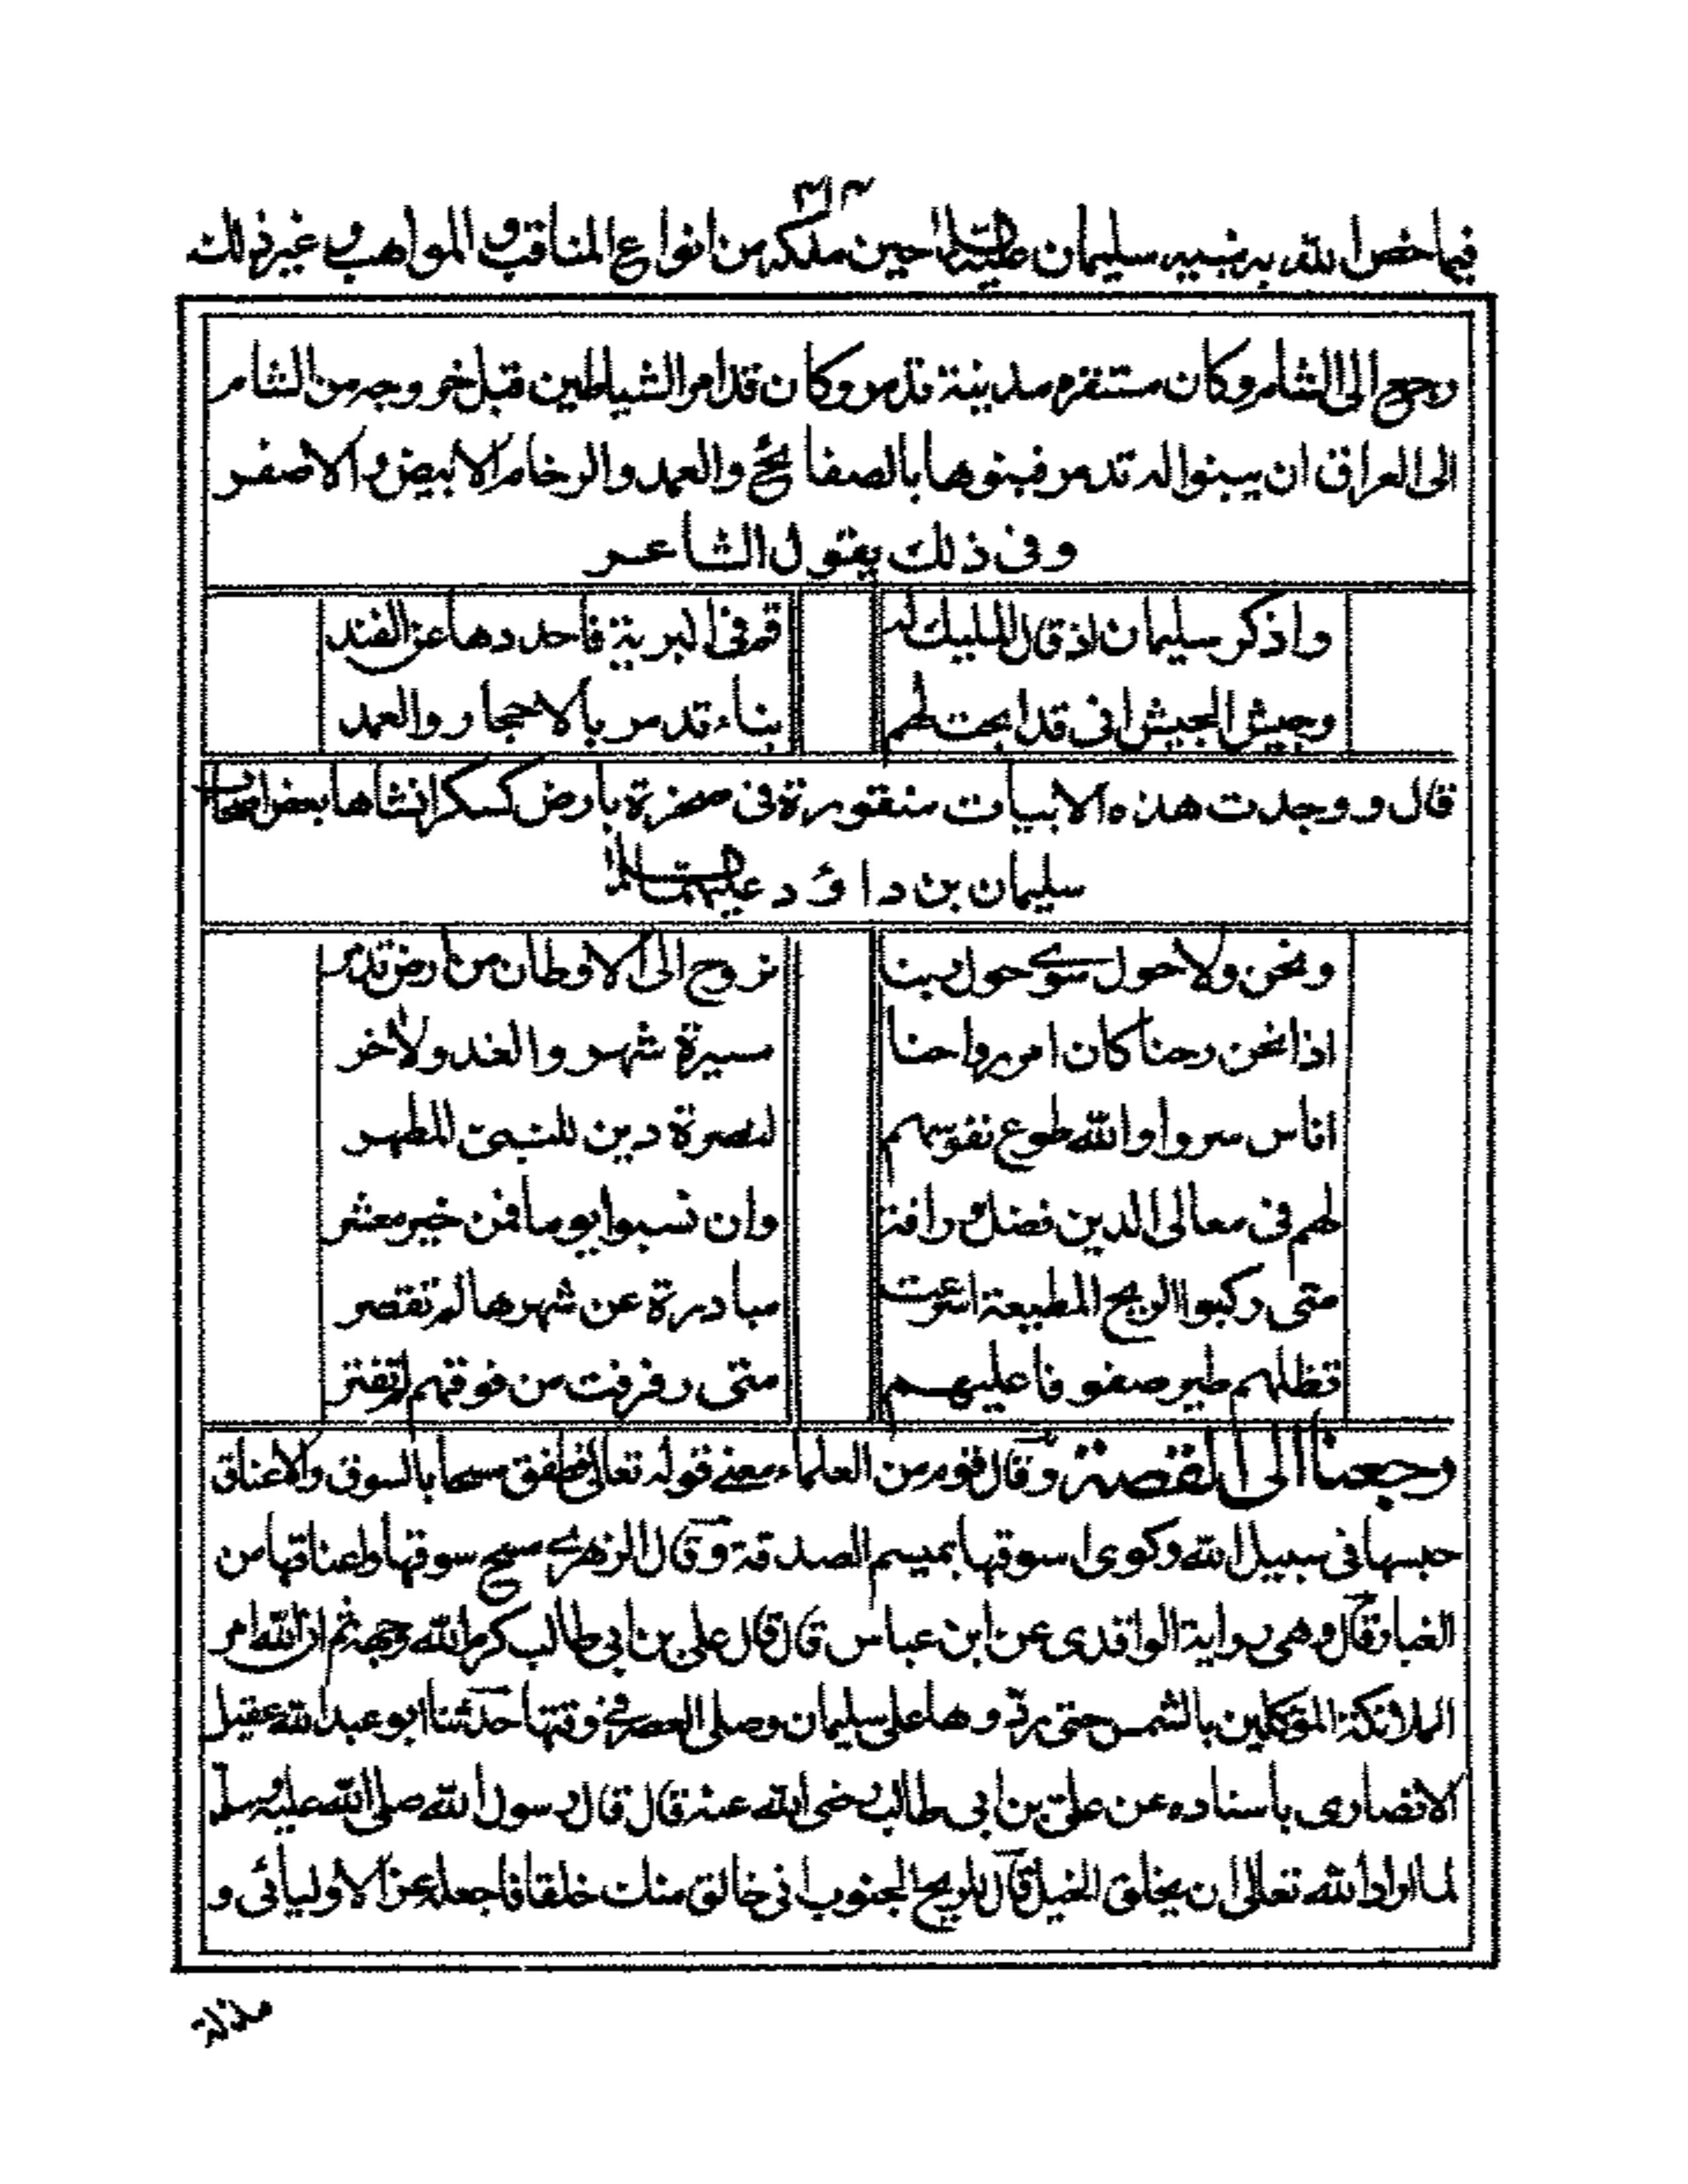 ٣١٣
فيما خص الله به نبيه سليمان عليه السلام حين ملكه من انواع المناقب والمواهب وغير ذلك
رجع الى الشام وكان مستقره مدينة تدمر وكان قد امر الشياطين قبل خروجه من الشام
الى العراق ان يبنوا له تدمر فبنوها بالصفائح والعمد والرخام الابيض والاصفر
وفى ذلك يقول الشاعر
واذكر سليمان اذ قال المليك له قم فى البرية فاحددها عن الفند
وجيش الجيش انى قد ابحت لهم بناء تدمر بالاحجار والعمد
قال ووجدت هذه الابيات منقورة فى صخرة بارض كسكر انشاها بعض اصحاب
سليمان بن داؤد عليهما السلام
ونحن ولاحول سوى حول ربنا نروح الى الاوطان من ارض تدمر
اذا نحن رحنا كان امر رواحنا مسيرة شهر والغد ولاخر
اناس سروا والله طوع نفوسهم لنصرة دين للنبى المطهر
لهم فى معالى الدين فضل ورافة وان نسبوا يوما فمن خير معشر
متى ركبوا الريح المطيعة اسرعت مبادرة عن شهرها لم تقصر
تظلهم طير صفوفا عليهم متى رفرفت من فوقهم لم تفتر
رجعنا الى القصة وقال قوم من العلماء معنى قوله تعالى فطفق مسحا بالسوق والاعناق
حبسها فى سبيل الله وكوى اسوقها بميسم الصدقة وقال الزهرى مسح سوقها واعناقها من
الغبار قال وهى رواية الواقدى عن ابن عباس قال قال على بن ابى طالب كرم الله وجهه ثم ان الله امر
الملائكة المؤكلين بالشمس حتى ردّوها على سليمان وصلى العصر فى وقتها حدّثنا ابو عبد الله عقيل
الانصارى باسناده عن علىّ بن ابى طالب رضى الله عنه قال قال رسول الله صلى الله عليه وسلّم
لما اراد الله تعالى ان يخلق الخيل قال للريح الجنوب انى خالق منك خلقا فاجعله عزالاوليائى و
مذلة